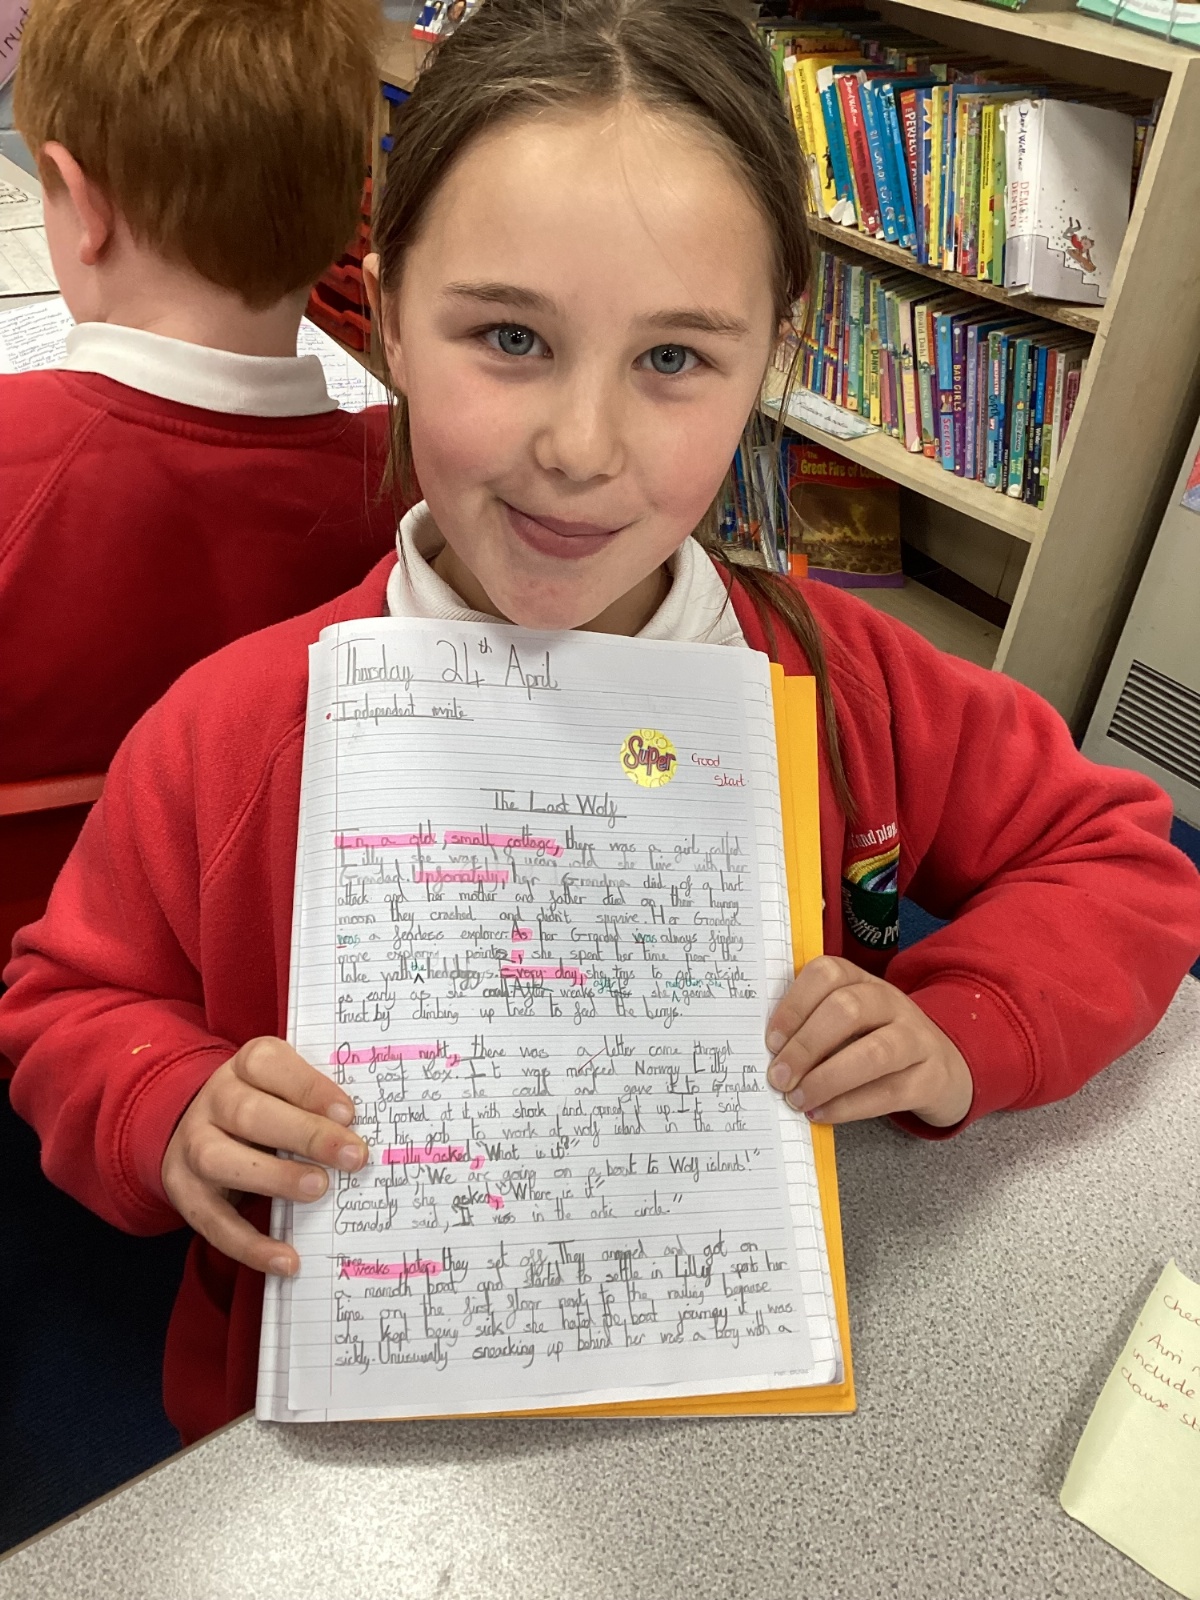 Thursday 24th April
Independent write
Super
Good
Start
The Last Wolf
In, a old, small cottage, there was a girl called
Lilly she was years old she live with her
Grandad. Unforatuly, her Grandma did of a hart
attack and her mother and father died on their hunny
moon they crashed and didn't Her Grandad
was a fearless explorer. As her Grandad was always finding
more exploring pointes, she spent her time near the
lake with the hedghogs. Every day, she trys to get outside
as early as she could. After weaks she gained their
trust by climbing up trees to feed the
On friday night, there was a letter came through
the post box. It was marked Norway Lilly ran
as fast as she could and gave it to Grandad.
Grandad looked at it with shock and opened it up. It said
got his job to work at wolf island in the artic
Lilly asked, "What is it?"
He replied, "We are going on a boat to Wolf islands!"
Curiously she asked, "Where is it"
Grandad said, "It was in the artic circle."
Three weaks later, they set off. They and got on
a mamoth boat and started to settle in Lilly spent her
time on the first floor next to the railing because
she kept being sick she hated the boat journey it was
sickly. Unusually sneacking up behind her was a boy with a
David Walliams
DEMON
DENTIST
PERFECT
Roald Dahl
DANNY
BAD GIRLS
Secrets
The
Great Fire of
and play
include
clause